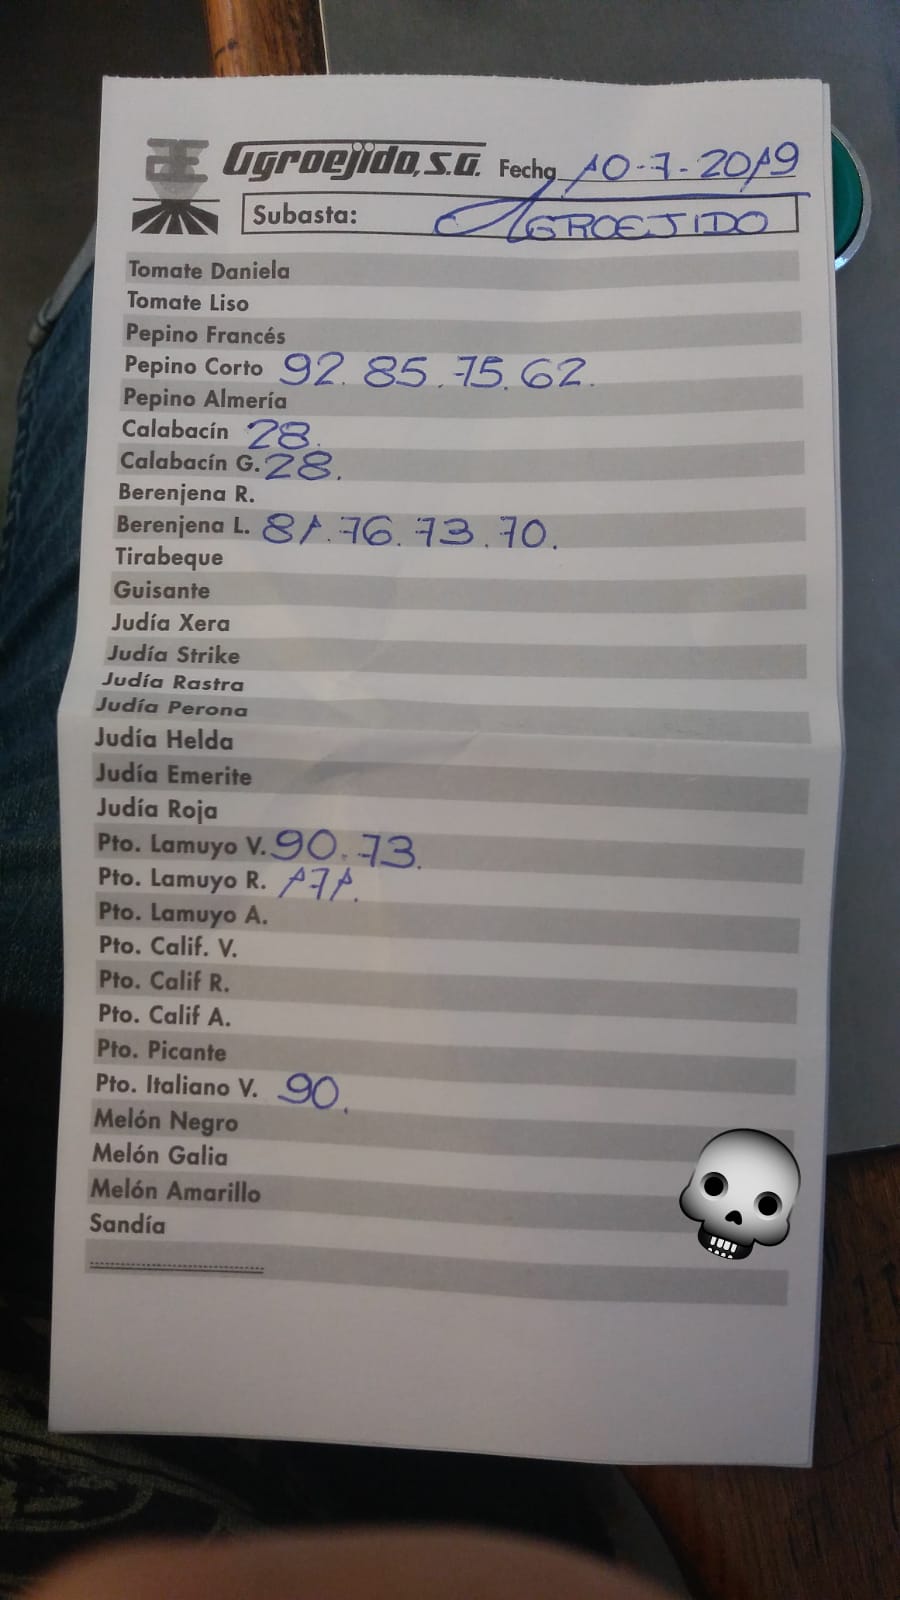 Agroejido, S.A. Fecha 10-7-2019
Subasta: AGROEJIDO
Tomate Daniela
Tomate Liso
Pepino Francés
Pepino Corto 92. 85. 75. 62.
Pepino Almería
Calabacín 28.
Calabacín G. 28.
Berenjena R.
Berenjena L. 81. 76. 73. 70.
Tirabeque
Guisante
Judía Xera
Judía Strike
Judía Rastra
Judía Perona
Judía Helda
Judía Emerite
Judía Roja
Pto. Lamuyo V. 90. 73.
Pto. Lamuyo R. 171.
Pto. Lamuyo A.
Pto. Calif. V.
Pto. Calif R.
Pto. Calif A.
Pto. Picante
Pto. Italiano V. 90.
Melón Negro
Melón Galia
Melón Amarillo
Sandía